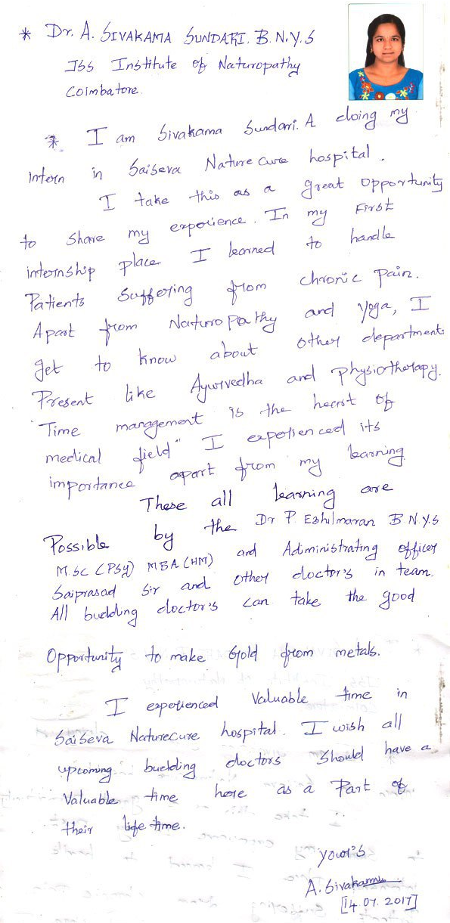 * Dr. A. SIVAKAMA SUNDARI. B.N.Y.S
JSS Institute of Naturopathy
Coimbatore.
* I am Sivakama Sundari. A doing my
Intern in Saiseva Nature Cure hospital.
I take this as a great opportunity
to share my experience. In my First
internship place I learned to handle
Patients Suffering from chronic pain.
Apart from Naturopathy and Yoga, I
get to know about other departments
Present like Ayurvedha and physiotherapy.
"Time management is the heart of
medical field" I experienced its
importance apart from my learning
These all learning are
Possible by the Dr P. Eshilmaran B.N.Y.S
MSC (PSY) MBA (HM) and Administrating officer
Saiprasad Sir and other doctor's in team.
All budding doctor's can take the good
Opportunity to make Gold from metals.
I experienced Valuable time in
Saiseva Naturecure hospital. I wish all
upcoming budding doctors should have a
Valuable time here as a Part of
their life time.
Your's
A. Sivakama
[14.07.2017]